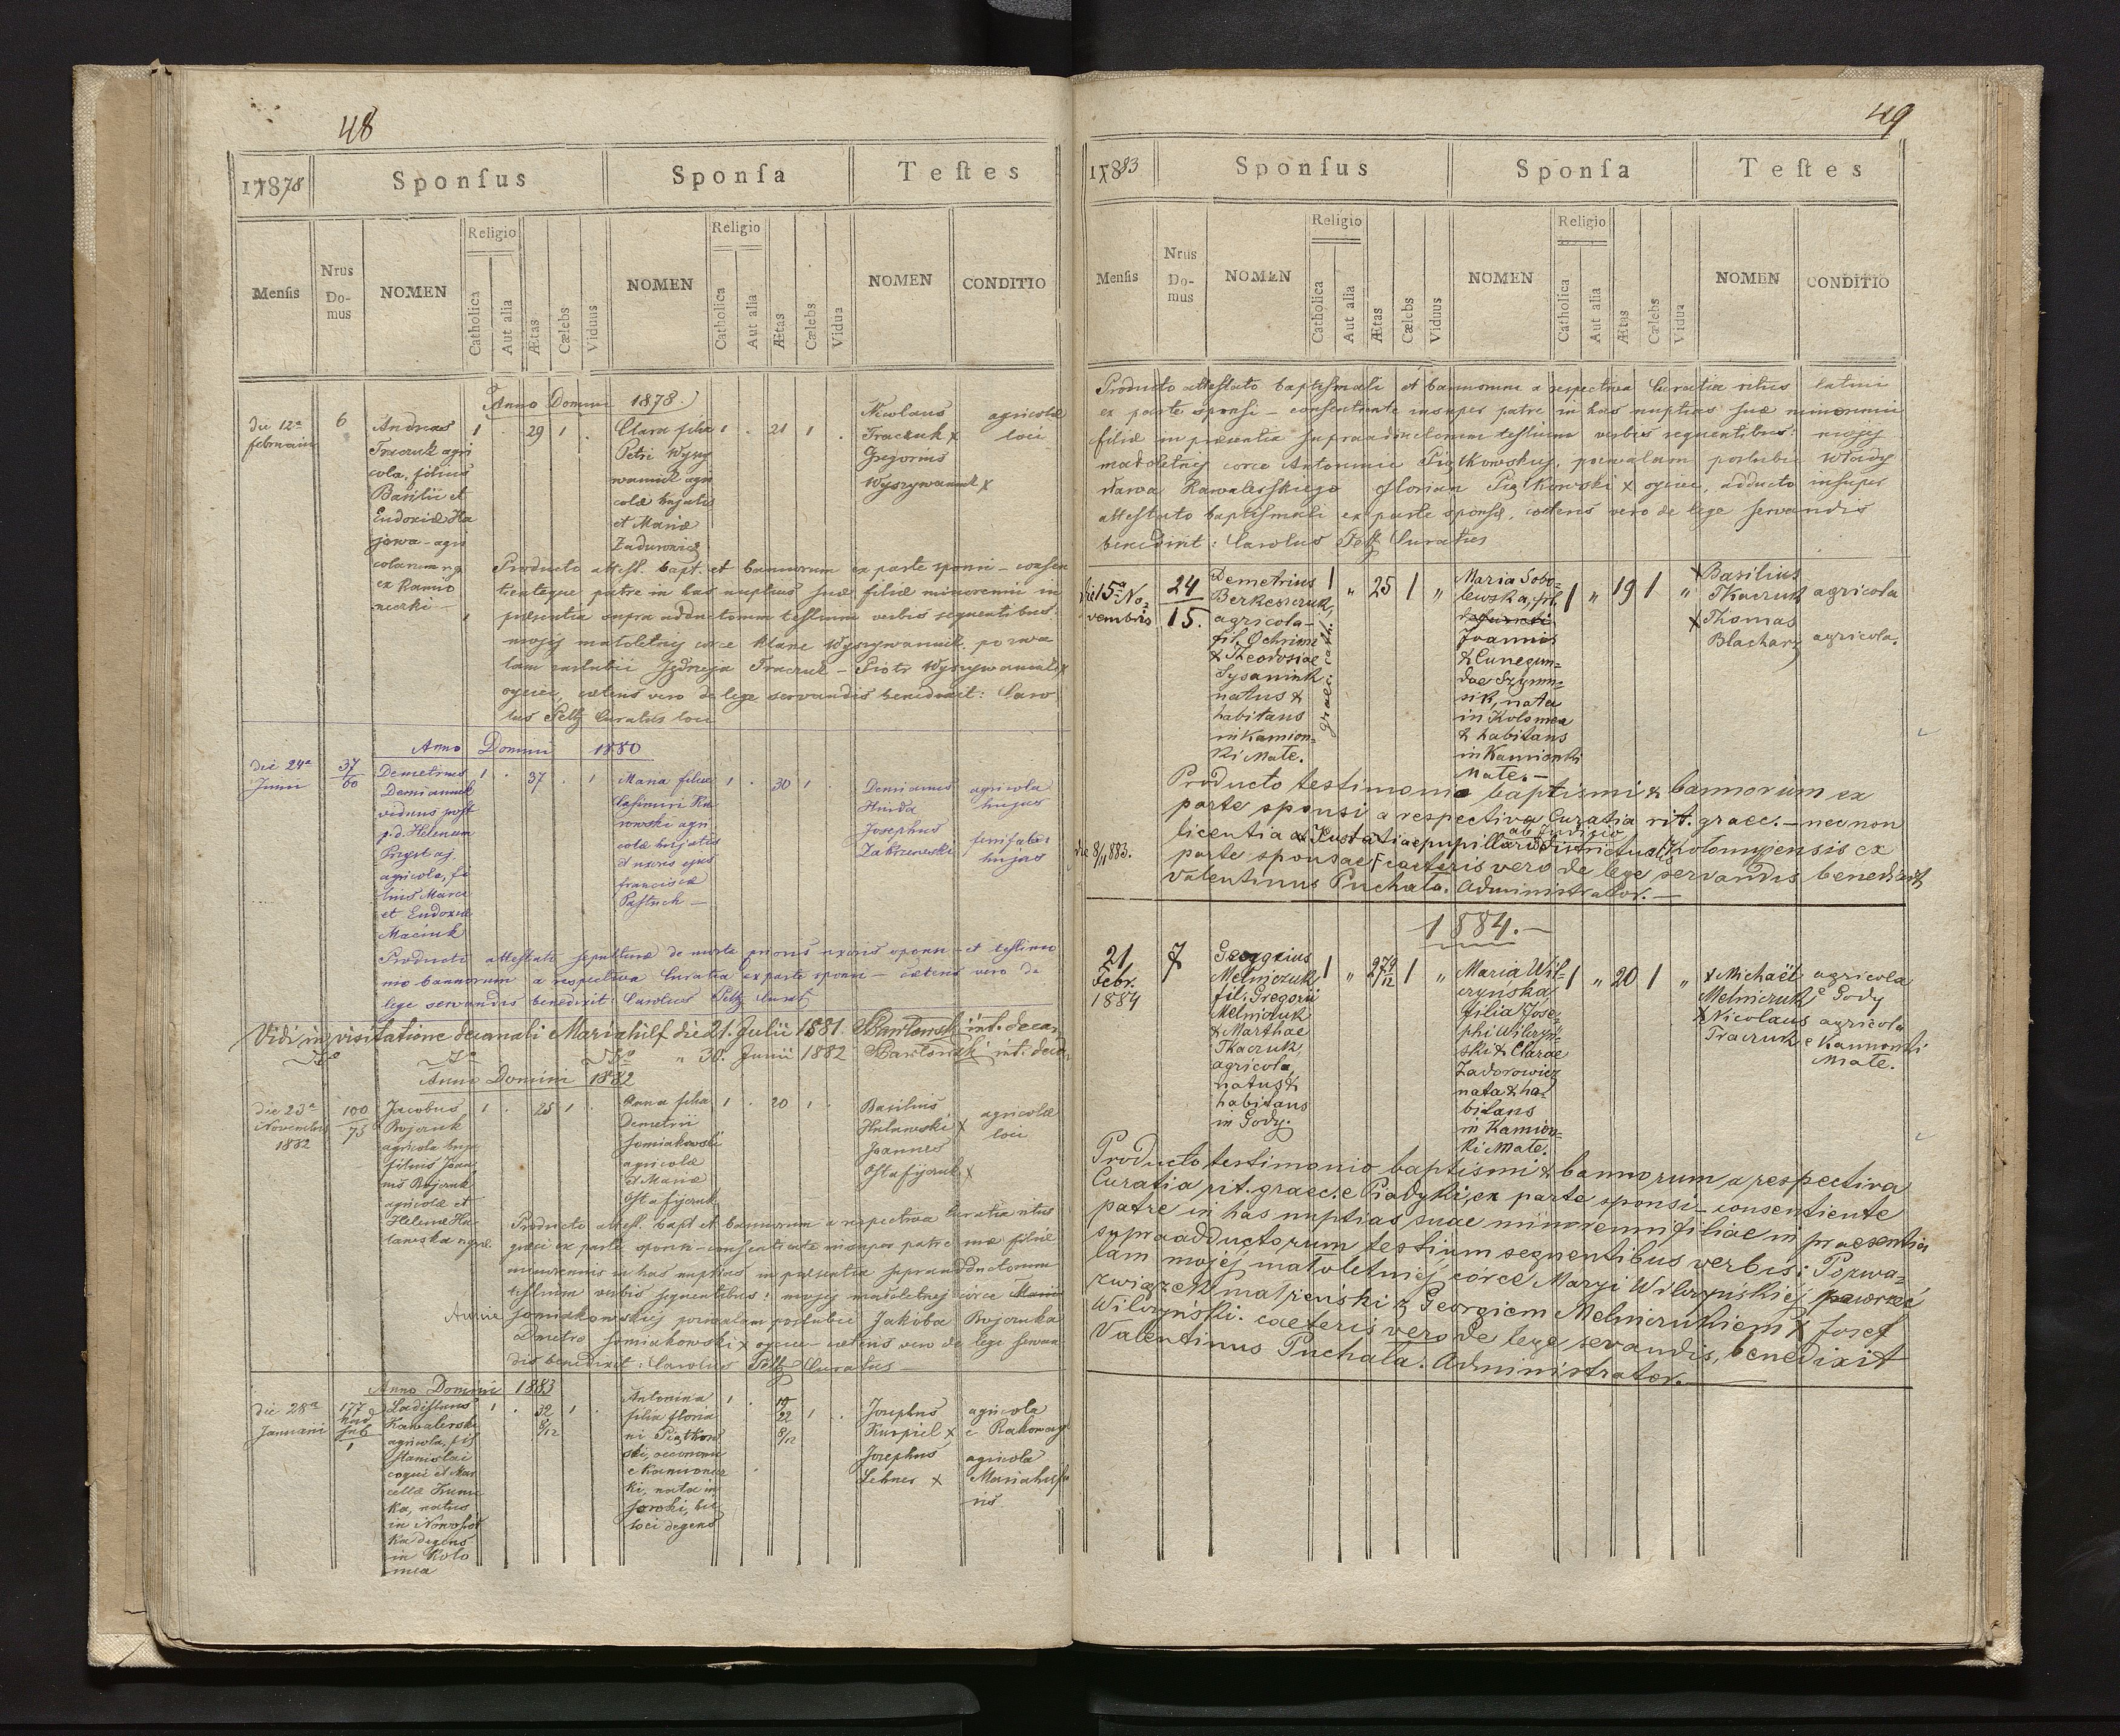 48
17878
Sponſus
Sponſa
Teſtes
Menſis
Nrus Do-mus
NOMEN
Religio
Catholica
Aut alia
Ætas
Cælebs
Viduus
NOMEN
Religio
Catholica
Aut alia
Ætas
Cælebs
Vidua
NOMEN
CONDITIO
Anno Domini 1878.
die 12a
februarii
6
Andreas
Traczuk agri
cola, filius
Basilii et
Eudoxiæ Ha
jowa - agri
colarum
ex Kamio
neczki -
1 . 29 1 .
Clara filia
Petri Wyszy
waniuk agri
colæ hujatis
et Mariæ
Zadurowicz
1 . 21 1 .
Nicolaus
Traczuk x
Gregorius
Wyszywaniuk x
agricolæ
loci
Producto attest. bapt. et bannorum ex parte sponsi - consen
tienteque patre in has nuptias suæ filiæ minorenni in
præsentia supra adductorum testium verbis sequentibus:
mojej małoletniej córce Klarze Wyszywaniuk pozwa
lam zaślubić Jędrzeja Traczuk - Piotr Wyszywaniuk x
ojciec, cæteris vero de lege servandis benedixit: Caro
lus Peltz Curatus loci
Anno Domini 1880
die 24a
Junii
37
60
Demetrius
Demianiuk
viduus post
p.d. Helenam
Przystaj
agricola, fi
lius Marci
et Eudoxiæ
Maciuk
1 . 37 . 1
Maria filia
Casimiri Ku
rowski agri
colæ hujatis
et uxoris ejus
franciscæ
Pastuch -
1 . 30 1 .
Demianus
Hnida
Josephus
Zakrzewski
agricola
hujas
hujas
Producti attestati sepulturæ de morte prioris uxoris sponsi - et testimo
nio bannorum a respectiva Curatia ex parte sponsi - cæteris vero de
lege servandis benedixit: Carolus Peltz Curat
Vidi in visitatione decanali Mariahilf die 21. Julii 1881.
" 30. Junii 1882
Anno Domini 1882
die 23a
Novembris
1882
100
75
Jacobus
Bojczuk
agricola huja
filius Joan
nis Bojczuk
agricolæ et
Helenæ Hu
laniska
1 . 25 1 .
Anna filia
Demetrii
Somiakowski
agricolæ
et Mariæ
Ostafijczuk
1 . 20 1 .
Basilius
x
Joannes
Ostafijczuk x
agricolæ
loci
Producto attest. bapt et bannorum a respectiva Curatia ritus
græci ex parte sponsi - consentiente insuper patre suæ filiæ
minorennis in has nuptias in præsentia supraadductorum
testium verbis sequentibus: mojej małoletniej córce Marii
Annie Somiakowskiej pozwalam poślubić Jakóba Bojczuka
Dmetro Somiakowski x ojciec - cæteris vero de lege servan
dis benedixit: Carolus Peltz Curatus -
Anno Domini 1883
die 28a
Januarii
177
1
Ladislaus
Kawalerski
agricola, fil
Stanislai
coqui et Mar
cellæ Kuni
ka, natus
in Nowosioł
ka degens
in Kolo
mea
1 . 32 8/12 1 .
Antonina
filia Floria
ni Piątkow
ski, oeconomi
e Kamionecz
ki, nata in
loci degens
1 . 19 22 8/12 1 .
Josephus
Kurpiel x
Josephus
Lehner x
agricola
e Rakowczyk
agricola
Mariahilfen
sis
49
17883
Sponſus
Sponſa
Teſtes
Menſis
Nrus Do-mus
NOMEN
Religio
Catholica
Aut alia
Ætas
Cælebs
Viduus
NOMEN
Religio
Catholica
Aut alia
Ætas
Cælebs
Vidua
NOMEN
CONDITIO
Producto attestato baptismali et bannorum a respectiva Curatia ritus latini
ex parte sponsi - consentiente insuper patre in has nuptias suæ minorenni
filiæ in præsentia supraadductorum testium verbis sequentibus: mojej
małoletniej córce Antoninie Piątkowskiej, pozwalam poślubić Włady
sława Kawalerskiego Florian Piątkowski x ojciec, adducto insuper
attestato baptismali ex parte sponsæ, cæteris vero de lege servandis
benedixit: Carolus Peltz Curatus
die 15a No-
vembris
24
15.
Demetrius
Berkeszczuk,
agricola -
fil. Ochrim
& Theodosiae
Sysaniuk
natus &
habitans
in Kamion-
ki Małe.
graec. cath.
1 " 25 1 "
Maria Sobo-
lewska, fil.
Joannis
& Cunegun-
dae Szymu-
sik, nata
in Kolomea
& habitans
in Kamionki
Małe. -
1 " 19 1 "
x Basilius
Tkaczuk
x Thomas
Blacharz
agricola
agricola.
Producto testimonio baptismi & bannorum ex
parte sponsi a respectiva Curatia rit. graec. - nec non
ab Judicio
licentia pupillaris districtuali Kołomyjensis ex
die 8/11 883.
parte sponsae, caeteris vero de lege servandis benedixit
Valentinus Puchała. Administrator. -
1884. -
21
Febr.
1884
7
Georgius
Melniczuk
fil. Gregorii
Melniczuk
& Marthae
Tkaczuk,
agricola,
natus &
habitans
in Gody.
1 " 27 9/12 1 "
Maria Wil-
czyńska,
filia Jose-
phi Wilczyń-
ski & Clarae
Zadorowicz
nata & ha-
bitans
in Kamion-
ki Małe.
1 " 20 1 "
x Michaël
Melniczuk
x Nicolaus
Traczuk
agricola
e Gody
agricola
e Kamionki
Małe.
Producto testimonio baptismi & bannorum a respectiva
Curatia rit. graec. e Piadyki, ex parte sponsi - consentiente
patre in has nuptias suae minorenni filiae in praesentia
supraadductorum testium sequentibus verbis: Pozwa-
lam mojéj małoletniéj córce Maryi Wilczyńskiéj zawrzeć
związek małżenski z Georgiem Melniczukiem x Josef
Wilczyński. caeteris vero de lege servandis, benedixit
Valentinus Puchała. Administrator. -